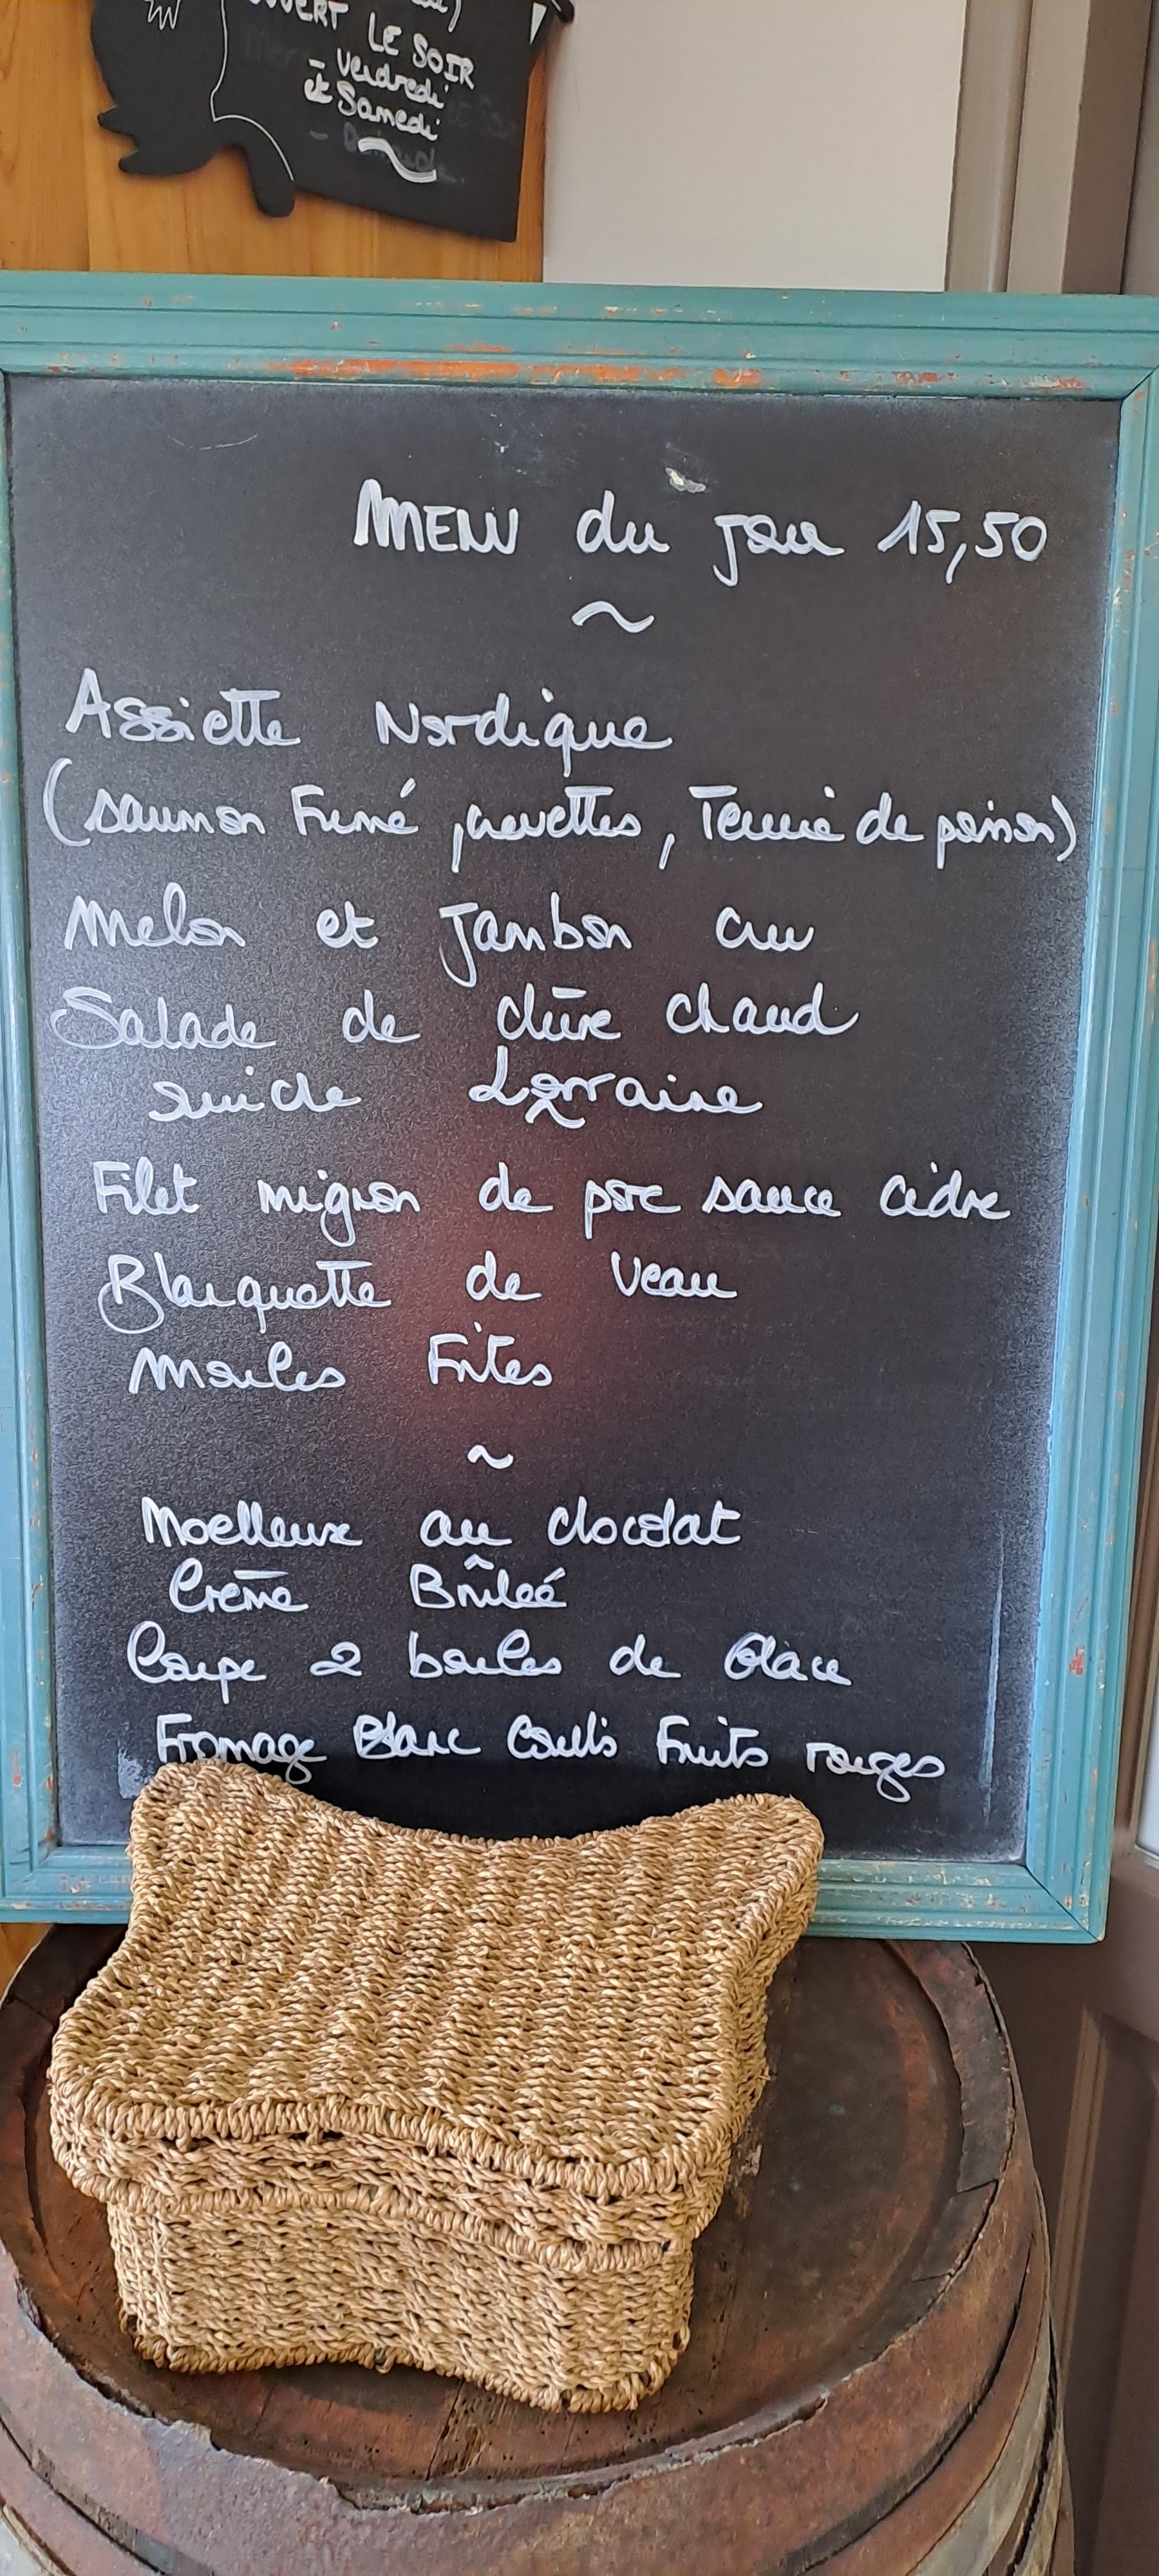 OUVERT LE SOIR
- Vendredi
et Samedi
MENU du jour 15,50
~
Assiette Nordique
(saumon Fumé, crevettes, Terrine de poisson)
Melon et Jambon cru
Salade de chèvre chaud
Quiche Lorraine
~
Filet mignon de porc sauce cidre
Blanquette de Veau
Moules Frites
~
Moelleux au chocolat
Crème Brûleé
Coupe 2 boules de Glace
Fromage Blanc Coulis Fruits rouges